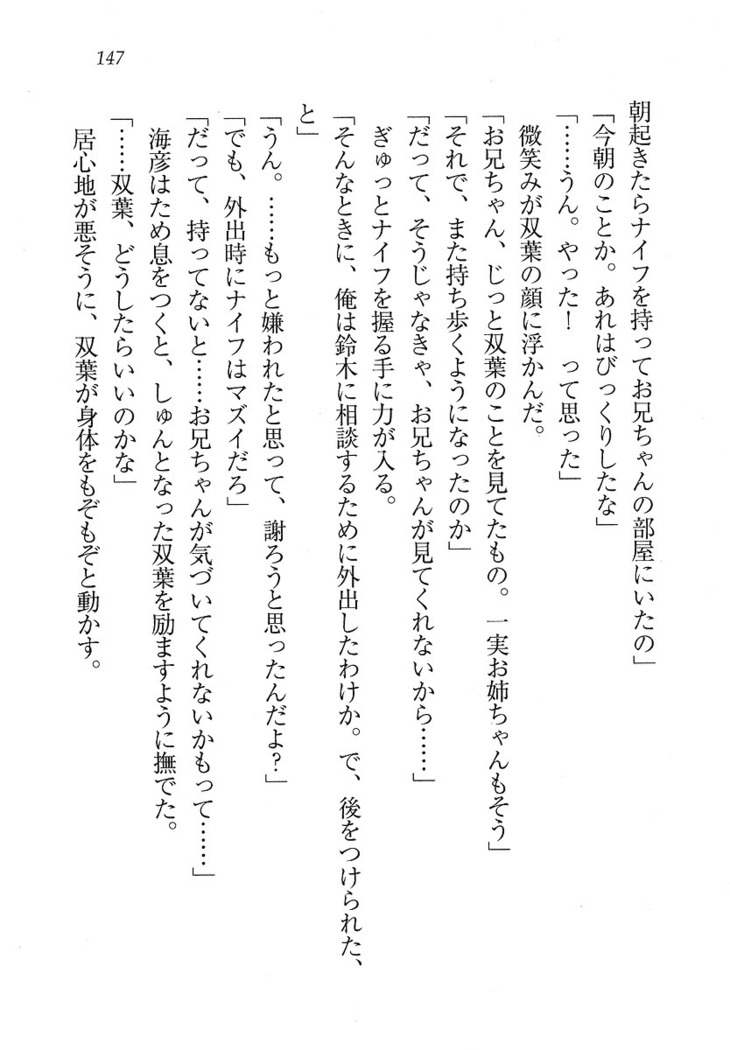 147
朝起きたらナイフを持ってお兄ちゃんの部屋にいたの」
「今朝のことか。あれはびっくりしたな」
「……うん。やった！　って思った」
微笑みが双葉の顔に浮かんだ。
「お兄ちゃん、じっと双葉のことを見てたもの。一実お姉ちゃんもそう」
「それで、また持ち歩くようになったのか」
「だって、そうじゃなきゃ、お兄ちゃんが見てくれないから……」
ぎゅっとナイフを握る手に力が入る。
「そんなときに、俺は鈴木に相談するために外出したわけか。で、後をつけられた、
と」
「うん。……もっと嫌われたと思って、謝ろうと思ったんだよ？」
「でも、外出時にナイフはマズイだろ」
「だって、持ってないと……お兄ちゃんが気づいてくれないかもって……」
海彦はため息をつくと、しゅんとなった双葉を励ますように撫でた。
「……双葉、どうしたらいいのかな」
居心地が悪そうに、双葉が身体をもぞもぞと動かす。